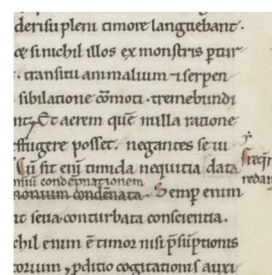 derisu pleni timore languebant.
ce si nichil illos ex monstris ptur
transitu animalium ⁊ serpen
sibilatione cōmoti. tremebundi
Et aerem quē nulla ratione
effugere posset. negantes se ui
Cū sit eni timida nequitia data
condempnationem
condēnata. Semp enim
seua conturbata conscientia.
chil enim ē timor nisi psūptionis
ꝓditio cogitationis auxi